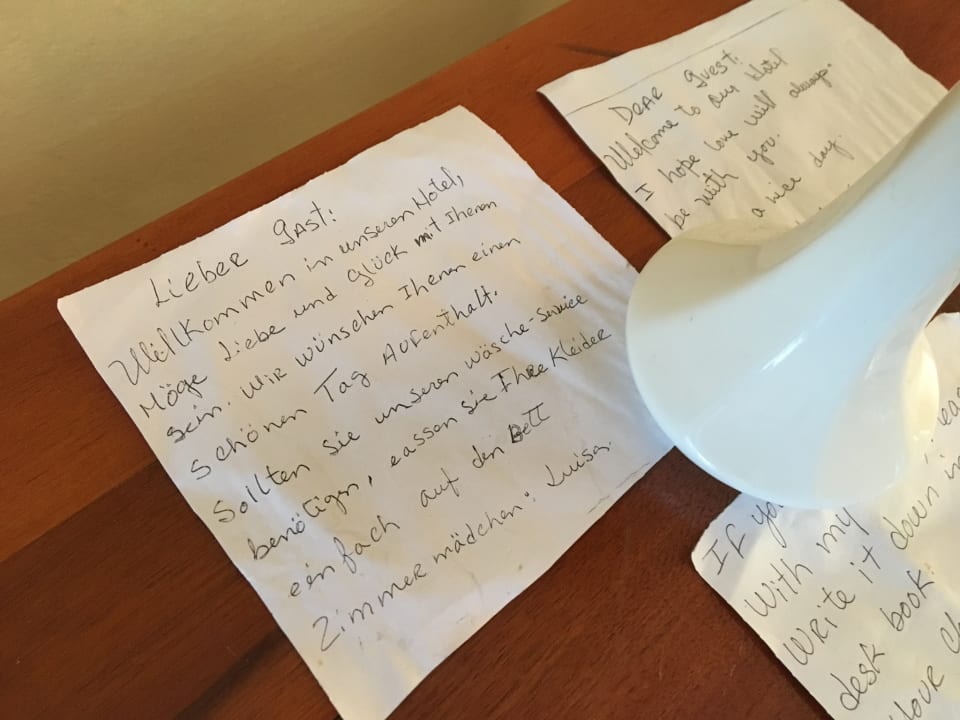 Lieber Gast:
Willkommen in unseren Hotel,
Möge Liebe und Glück mit Iheren
sein. Wir wünschen Iheren einen
schönen Tag Aufenthalt.
Sollten sie unseren wäsche-service
benötigen, eassen sie Ihre Kleider
einfach auf den Bett
Zimmer mädchen: Luisa.
Dear guest:
Welcome to our Hotel
I hope love will always
be with you.
a nice day.
If yo
With my
Write it down in
desk book.
love